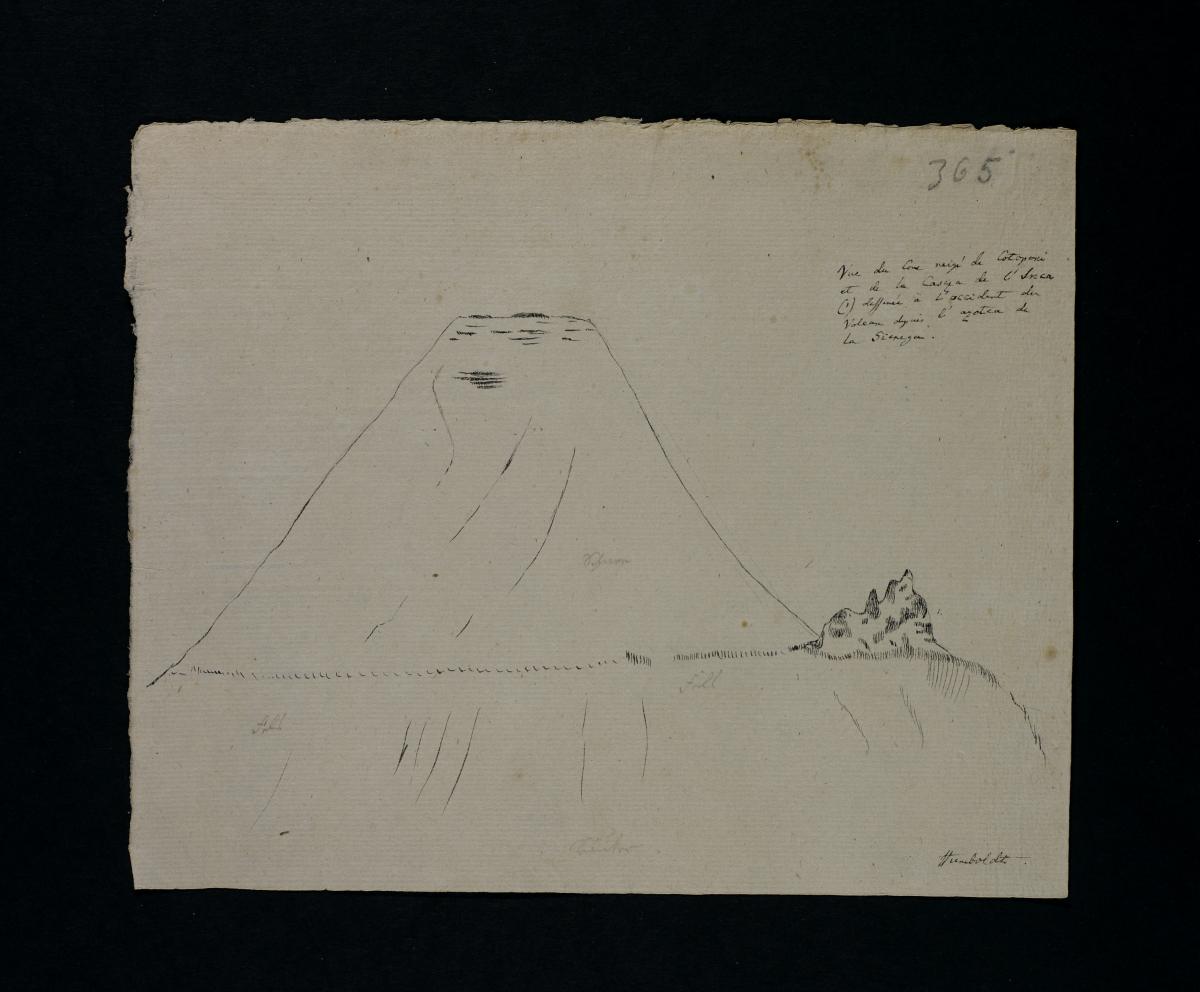 365
Vue du Cone neigé de Cotopaxi
et de la Caseza de l'Inca
(1) dessinée à l'occident du
Volcan depuis l'azotea de
la Sienega.
Füll
Humboldt